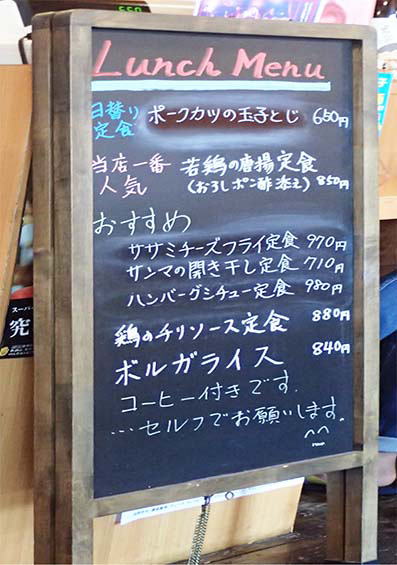 Lunch Menu
日替り定食 ポークカツの玉子とじ 650円
当店一番人気 若鶏の唐揚定食
(おろしポン酢添え) 850円
おすすめ
ササミチーズフライ定食 970円
サンマの開き干し定食 710円
ハンバーグシチュー定食 980円
鶏のチリソース定食 880円
ボルガライス 840円
コーヒー付きです.
...セルフでお願いします.
^^
スーパー
究